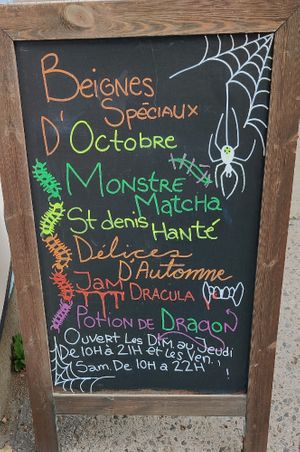 Beignes
Spéciaux
D'Octobre
Monstre
Matcha
St denis Hanté
Délices
D'Automne
Jam Dracula
Potion de Dragon
Ouvert Les Dim. au Jeudi
De 10H à 21H et Les Ven.
Sam. De 10H à 22H !